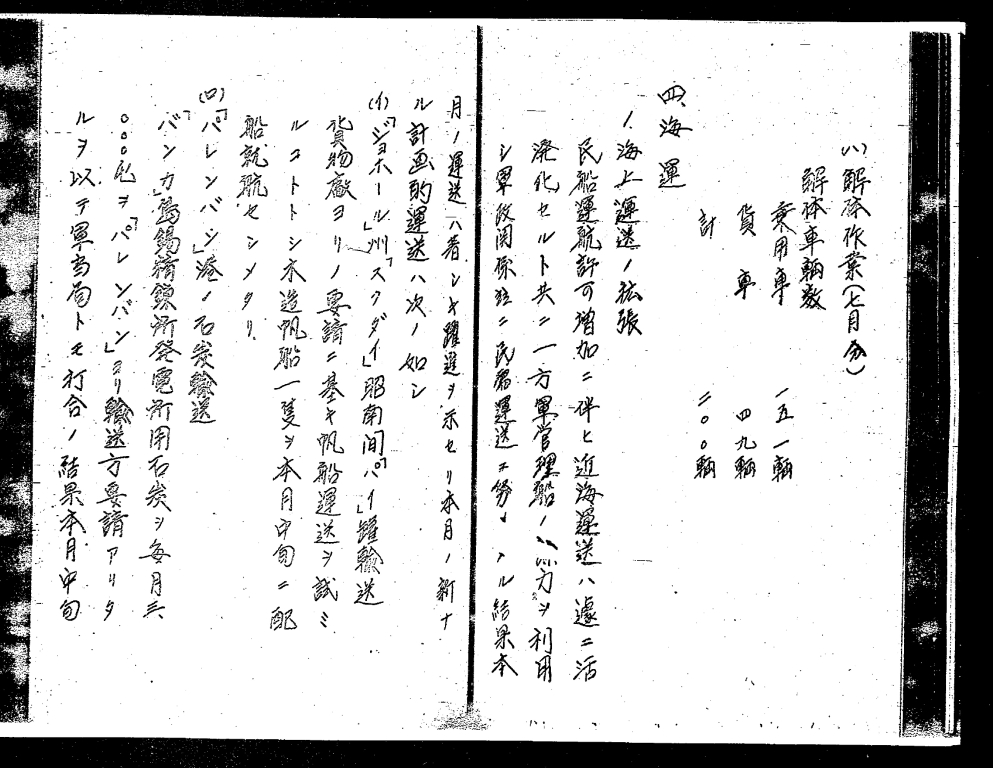 (ハ)解体作業(七月分)
解体車輌数
乗用車 一五一輌
貨車 四九輌
計 二〇〇輌
四、海運
1.海上運送ノ拡張
民船運航許可増加ニ伴ヒ近海運送ハ遽ニ活
溌化セルト共ニ一方軍管理船ノ 力ヲ利用
シ軍政関係並ニ民需運送ニ努 タル結果本
月ノ運送ハ著シキ躍進ヲ示セリ本月ノ新ナ
ル計画的運送ハ次ノ如シ
(イ)「ジョホール」州「スクダイ」昭南間「パイ」罐輸送
貨物廠ヨリノ要請ニ基キ帆船運送ヲ試ミ
ルコトトシ木造帆船一隻ヲ本月中旬ニ配
船就航セシメタリ
(ロ)「パレンバン」港ノ石炭輸送
「バンカ」島錫精錬所発電所用石炭ヲ毎月三、
〇〇〇屯ヲ「パレンバン」ヨリ輸送方要請アリタ
ルヲ以テ軍当局トモ打合ノ結果本月中旬